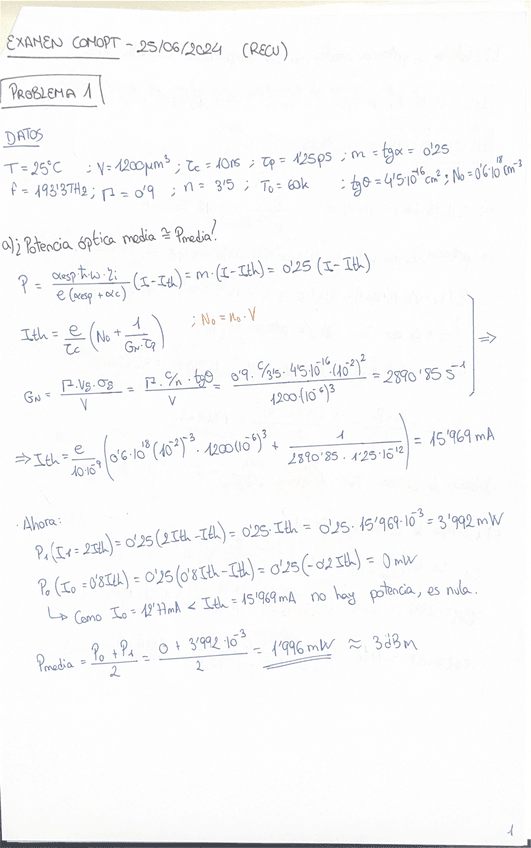 EXAMEN COMOPT - 25/06/2024 (RECU)
PROBLEMA 1
DATOS
T = 25°C ; V = 1200μm³ ; τc = 10ns ; τp = 1'25ps ; m = tgα = 0'25
f = 193'3THz ; Γ = 0'9 ; n = 3'5 ; T₀ = 60k ; tgθ = 4'5·10⁻¹⁶ cm² ; N₀ = 0'6·10¹⁸ cm⁻³
a) ¿Potencia óptica media ≅ Pmedia?
P = αesp ħ·w·ξi / e(αesp + αc) (I - Ith) = m·(I - Ith) = 0'25 (I - Ith)
Ith = e/τc (N₀ + 1/(GN·τp)) ; N₀ = n₀·V
GN = Γ·vg·σg / V = Γ·c/n·tgθ / V = 0'9·c/3'5·4'5·10⁻¹⁶·(10⁻²)² / 1200(10⁻⁶)³ = 2890'85 s⁻¹ ⇒
⇒ Ith = e/10·10⁻⁹ (0'6·10¹⁸(10⁻²)⁻³·1200(10⁻⁶)³ + 1/(2890'85·1'25·10⁻¹²)) = 15'969 mA
· Ahora:
P₁ (I₁ = 2Ith) = 0'25 (2Ith - Ith) = 0'25·Ith = 0'25·15'969·10⁻³ = 3'992 mW
P₀ (I₀ = 0'8Ith) = 0'25 (0'8Ith - Ith) = 0'25 (-0'2 Ith) = 0 mW
↳ Como I₀ = 12'77mA < Ith = 15'969 mA no hay potencia, es nula.
Pmedia = P₀ + P₁ / 2 = 0 + 3'992·10⁻³ / 2 = 1'996 mW ≈ 3dBm
1